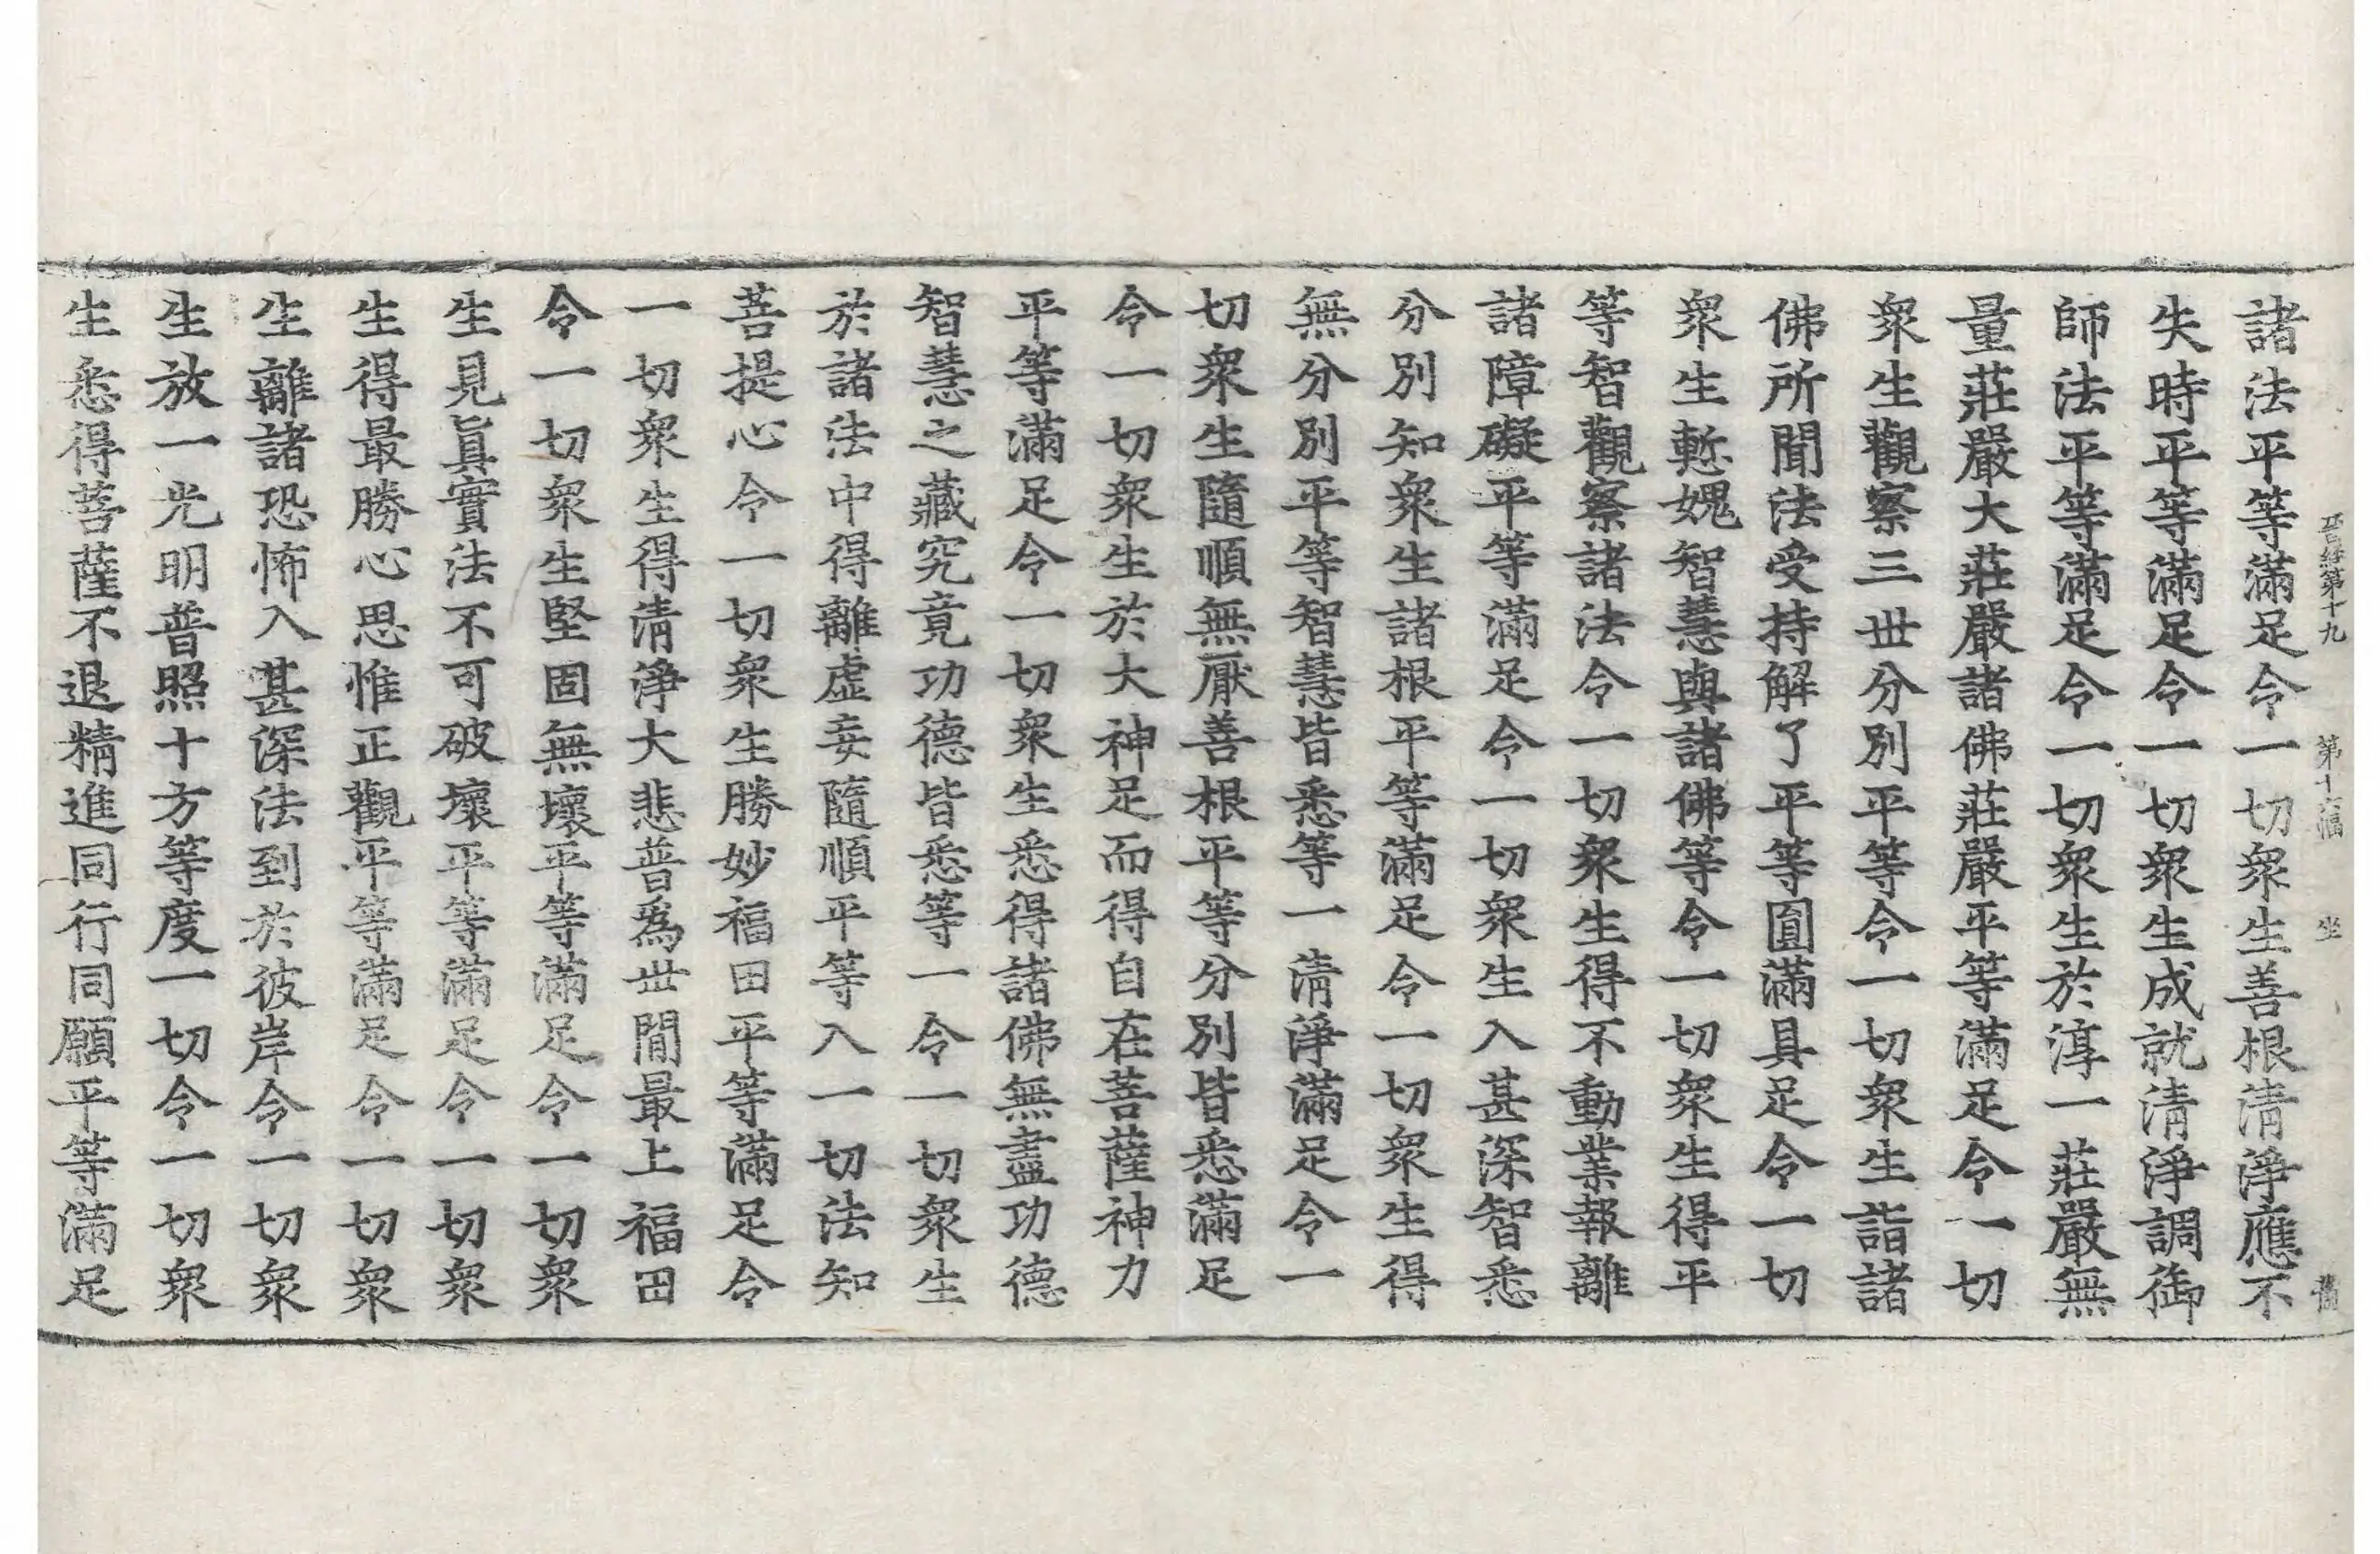 晉經第十九 第十六幅 坐
諸法平等滿足令一切衆生善根清淨應不
失時平等滿足令一切衆生成就清淨調御
師法平等滿足令一切衆生於淳一莊嚴無
量莊嚴大莊嚴諸佛莊嚴平等滿足令一切
衆生觀察三世分別平等令一切衆生詣諸
佛所聞法受持解了平等圓滿具足令一切
衆生慙愧智慧與諸佛等令一切衆生得平
等智觀察諸法令一切衆生得不動業報離
諸障礙平等滿足令一切衆生入甚深智悉
分別知衆生諸根平等滿足令一切衆生得
無分別平等智慧皆悉等一清淨滿足令一
切衆生隨順無厭善根平等分別皆悉滿足
令一切衆生於大神足而得自在菩薩神力
平等滿足令一切衆生悉得諸佛無盡功德
智慧之藏究竟功德皆悉等一令一切衆生
於諸法中得離虛妄隨順平等入一切法知
菩提心令一切衆生勝妙福田平等滿足令
一切衆生得清淨大悲普爲世間最上福田
令一切衆生堅固無壞平等滿足令一切衆
生見眞實法不可破壞平等滿足令一切衆
生得最勝心思惟正觀平等滿足令一切衆
生離諸恐怖入甚深法到於彼岸令一切衆
生放一光明普照十方等度一切令一切衆
生悉得菩薩不退精進同行同願平等滿足